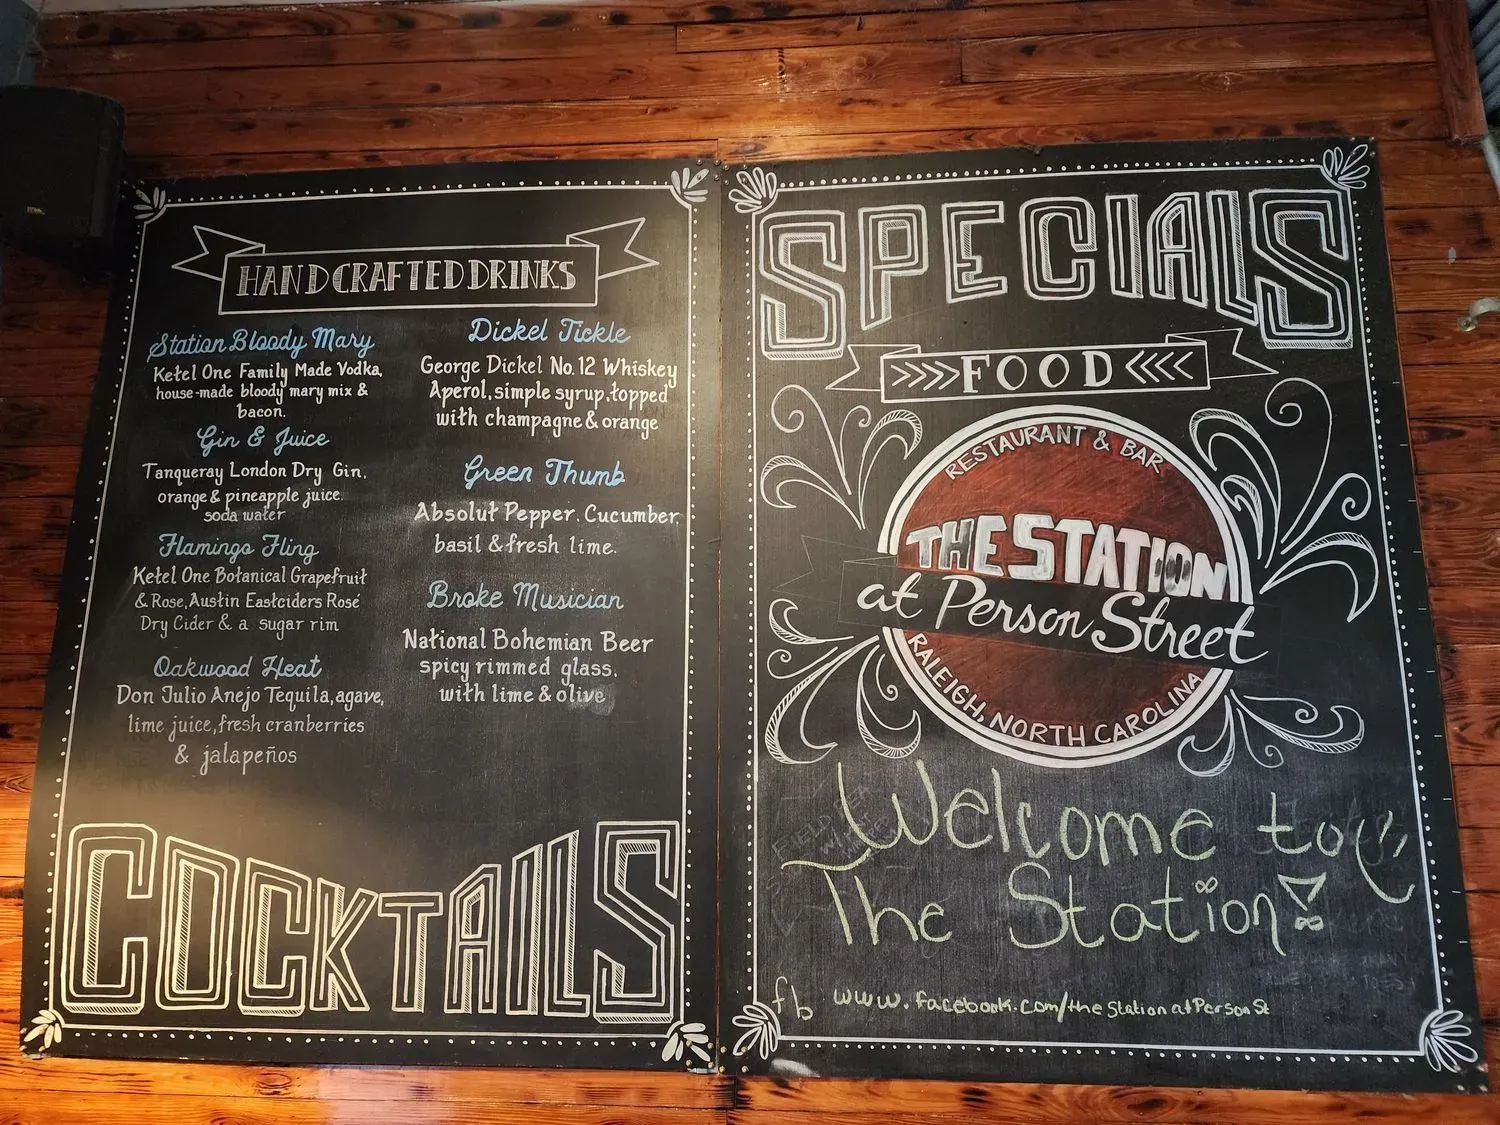 HANDCRAFTED DRINKS
Station Bloody Mary
Ketel One Family Made Vodka,
house-made bloody mary mix &
bacon.
Gin & Juice
Tanqueray London Dry Gin,
orange & pineapple juice.
soda water
Flamingo Fling
Ketel One Botanical Grapefruit
& Rose, Austin Eastciders Rosé
Dry Cider & a sugar rim
Oakwood Heat
Don Julio Anejo Tequila, agave,
lime juice, fresh cranberries
& jalapeños
Dickel Tickle
George Dickel No. 12 Whiskey
Aperol, simple syrup, topped
with champagne & orange
Green Thumb
Absolut Pepper, Cucumber,
basil & fresh lime.
Broke Musician
National Bohemian Beer
spicy rimmed glass,
with lime & olive
COCKTAILS
SPECIALS
>>>> FOOD <<<<
RESTAURANT & BAR
THE STATION
at Person Street
RALEIGH, NORTH CAROLINA
Welcome to
The Station!
fb www.facebook.com/theStationatPersonSt